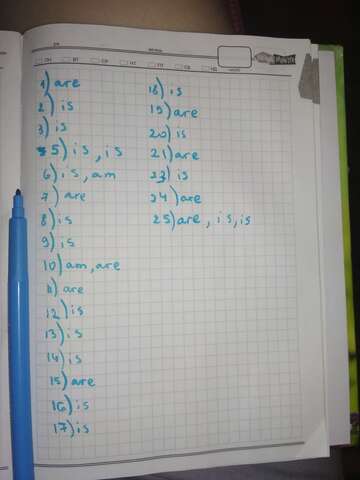 1) are
2) is
3) is
5) is, is
6) is, am
7) are
8) is
9) is
10) am, are
11) are
12) is
13) is
14) is
15) are
16) is
17) is
18) is
19) are
20) is
21) are
23) is
24) are
25) are, is, is